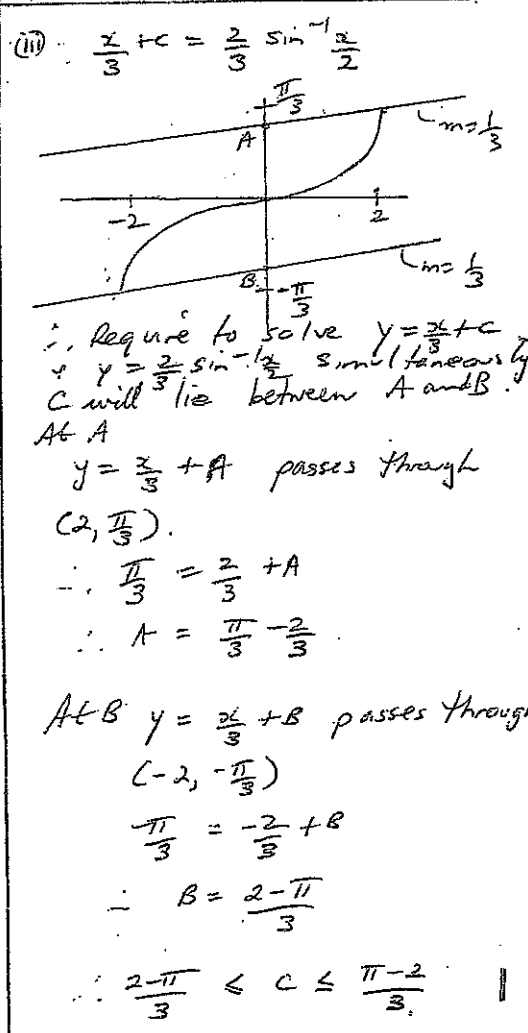 (iii) x/3 + c = 2/3 sin⁻¹ x/2
π/3
A
m = 1/3
-2
2
m = 1/3
B
-π/3
∴ Require to solve y = x/3 + c
& y = 2/3 sin⁻¹ x/2 simultaneously
C will lie between A and B.
At A
y = x/3 + A passes through
(2, π/3).
∴ π/3 = 2/3 + A
∴ A = π/3 - 2/3.
At B y = x/3 + B passes through
(-2, -π/3)
-π/3 = -2/3 + B
∴ B = (2-π)/3
∴ (2-π)/3 ≤ c ≤ (π-2)/3. 1